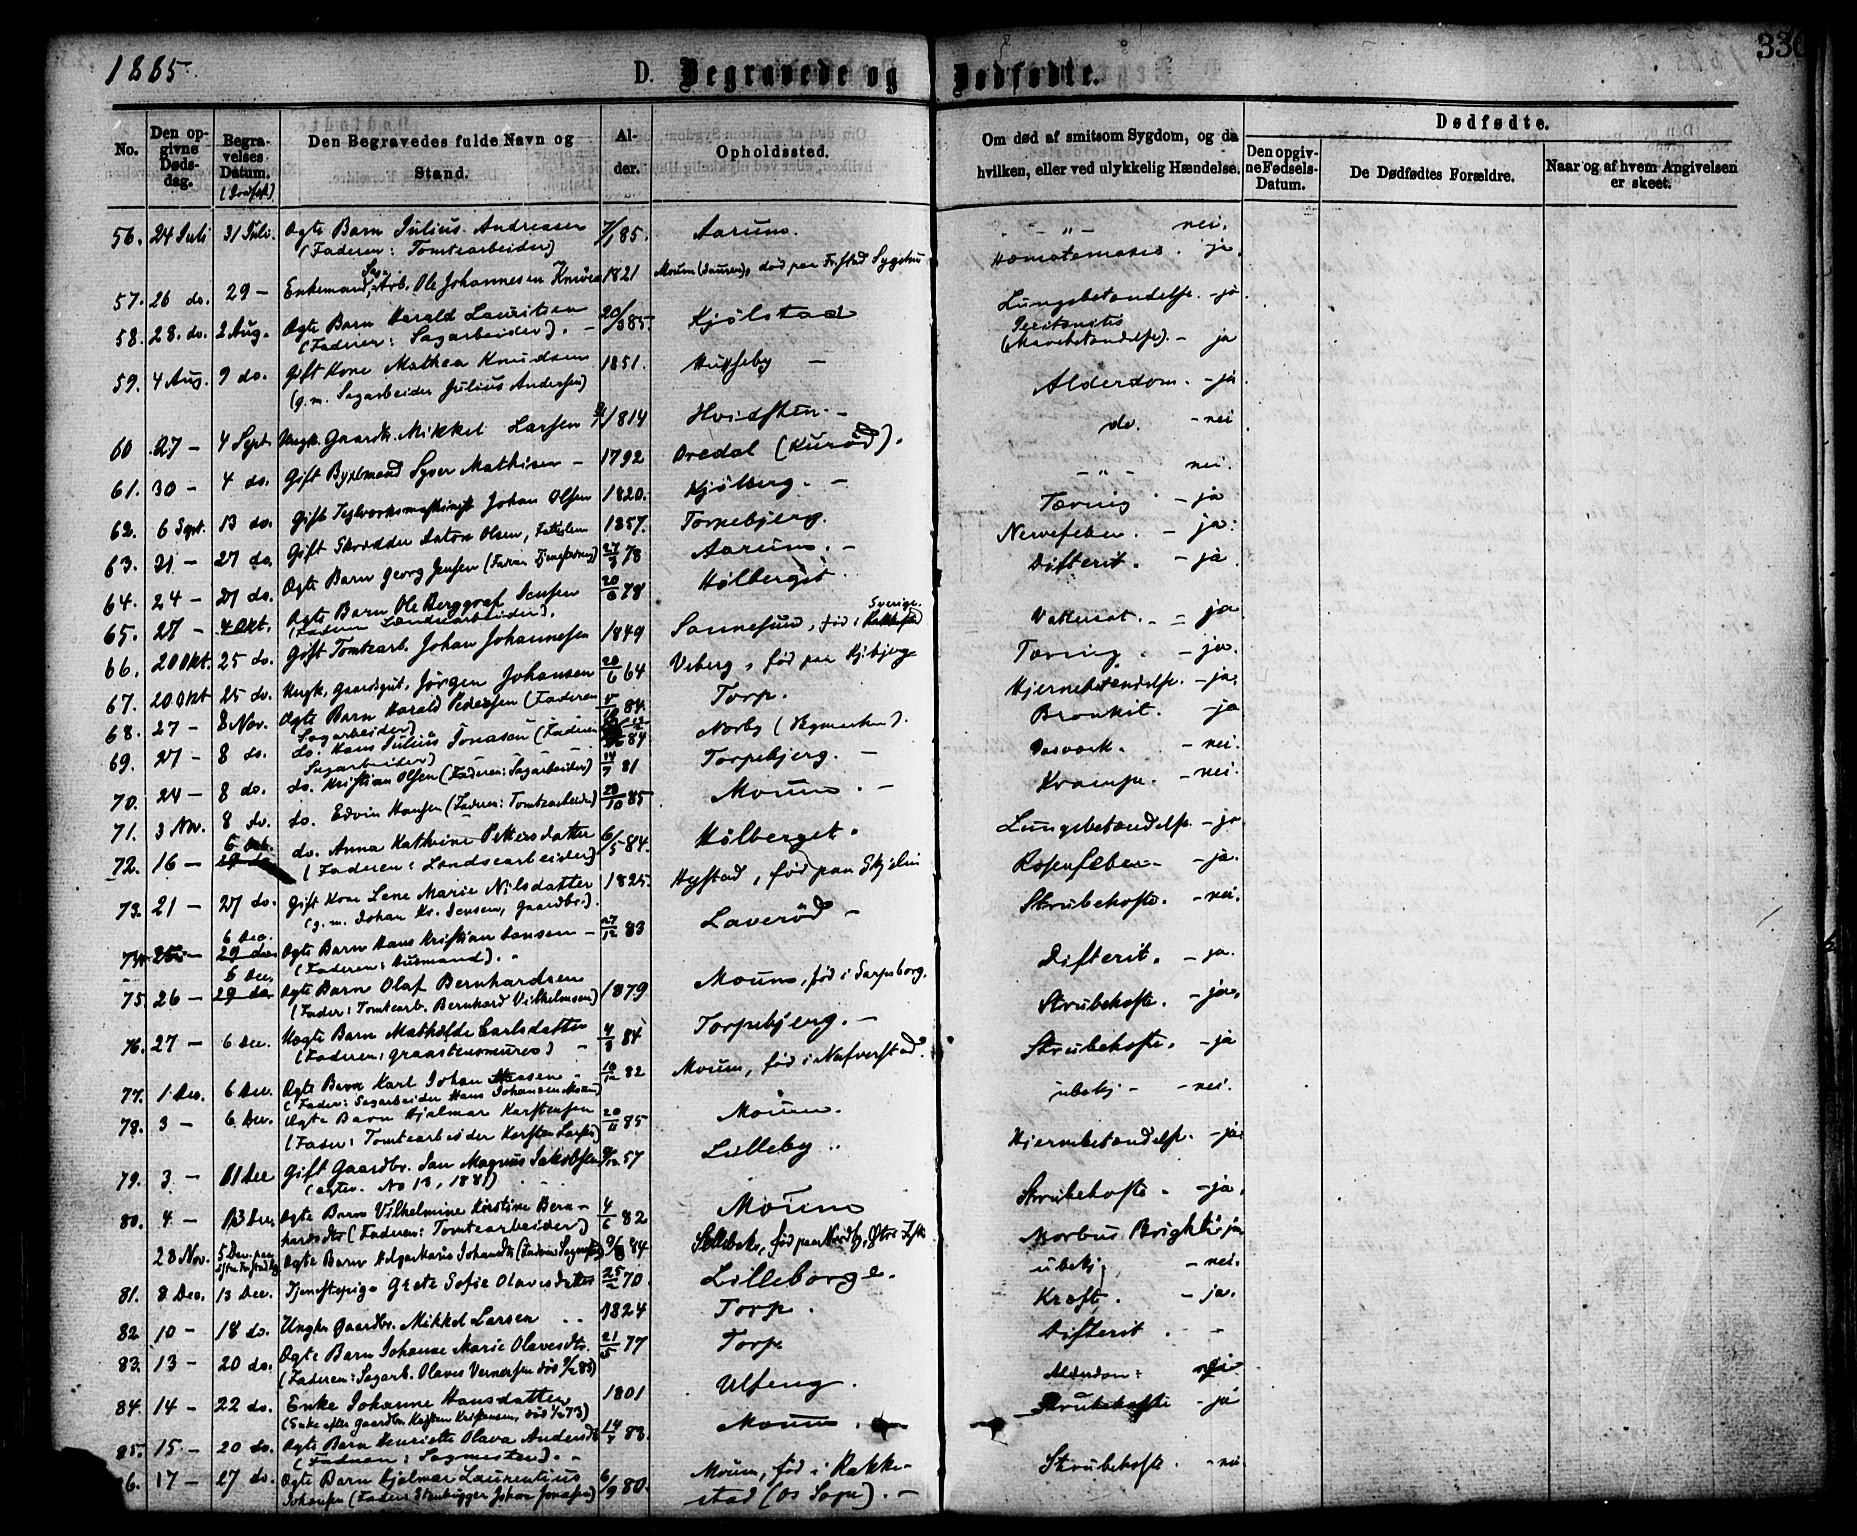 1885.
D. Begravede og Dødfødte.
336
No.
Den opgivne Dødsdag.
Begravelses Datum.
Den Begravedes fulde Navn og Stand.
Alder.
Opholdssted.
Om død af smitsom Sygdom, og da hvilken, eller ved ulykkelig Hændelse.
Dødfødte.
Den opgivne Fødsels-Datum.
De Dødfødtes Forældre.
Naar og af hvem Angivelsen er skeet.
56. 24 Juli 31 Juli. Ægte Barn Julius Andreasen 7/1 85. Aarum. - " - nei.
(Faderen: Tomtearbeider)
57. 26 do. 29 - Enkemand, Sag-Arb. Ole Johannesen 1821 Moum død paa Fr.stad Sygehus Hæmatemesis. ja.
58. 28. do. 2 Aug. Ægte Barn Harald Lauritsen 20/3 85. Kjølstad Lungebetændelse. - ja.
(Faderen: Sagarbeider). -
59. 4 Aug. 9 do. Gift Kone Mathea Knudsen 1851. Husseby - Peritonitis (Mavebetændelse). - ja
(g. m. Sagarbeider Julius Andersen)
60 27 - 4 Sept. Ungk. Gaardbr. Mikkel Larsen 1814 Hvidsten. - Alderdom. - ja.
61. 30 - 4 do. Gift Bygselmand Syver Mathisen - 1792 Oredal (Kurød). do. - nei
62. 6 Sept. 13 do. Gift Teglverksmaskinist Johan Olsen 1820. Kjølberg. - - " - nei.
63. 21 - 27 do. Gift Skrædder Anton Olsen, Fattiglem 1857. Torpebjerg. Tæring. - ja
64. 24 - 27 do. Ægte Barn Georg Jensen 27/3 78 Aarum. - Nervefeber. - ja.
65. 27 - 4 Okt. Ægte Barn Ole Berggraf Jensen 20/6 78 Hølberget. Difterit. - ja.
(Faderen Landsearbeider).
66. 20 Okt. 25 do. Gift Tomtearb. Johan Johannesen 1849 Sannesund, fød i Sverige. Vattersot. - ja
67. 20 Okt 25 do. Ungk. Gaardsgut, Jørgen Johansen 20/6 64 Viberg, fød paa Tæring. - ja.
68. 27 - 8 Nov. Ægte Barn Harald Pedersen (Faderen Sagarbeider) 84. Torp. Hjernebetændelse. - ja.
69. 27 - 8 do. do. Hans Julius Jonasen (Faderen Sagarbeider) 84 Norby Bronkit. - ja
70. 24 - 8 do. do. Kristian Olsen (Faderen: Sagarbeider) 14/7 81 Torpebjerg. - nei.
71. 3 Nov. 8 do. do. Edvin Hansen (Faderen: Tomtearbeider) 28/10 85 Moum. - Krampe. - nei.
72. 16 - 6 Dec. do. Anna Kathrine Pettersdatter 6/5 84. Hølberget. Lungebetændelse - ja
(Faderen: Landsearbeider)
73. 21 - 27 do. Gift Kone Lene Marie Nilsdatter 1825. Hystad, fød paa Skjelin Rosenfeber - ja.
(g. m. Johan Kr. Jensen, Gaardbr.).
74. 6 Dec. Ægte Barn Hans Kristian Hansen - 27/12 83 Laverød - Strubehoste. - nei.
(Faderen: Husmand).
75 26 - 6 Dec. Ægte Barn Olaf Bernhardsen 1879 Moum, fød i Sarpsborg. Difterit. - ja.
(Fader: Tomtearb. Bernhard Vilhelmsen)
76. 27 - 6 Dec. Uægte Barn Mathilde Carlsdatter 4/3 84 Torpebjerg. - Strubehoste. - ja.
(Faderen: Graastensmurer)
77. 1 Dec. 6 Dec. Ægte Barn Karl Johan Hansen - 10/12 82 Moum, fød i Nafverstad. Strubehoste. - ja
(Fader: Sagarbeider Hans Johansen)
78. 3 - 6 Dec. Ægte Barn Hjalmar Karstensen 20/11 85 Moum. ubekj - nei.
(Fader: Tomtearbeider Karsten Larsen)
79. 3 - 11 Dec Gift Gaardbr. Jan Magnus Jakobsen 57 Lilleby. Hjernebetændelse. - ja.
(ægtev. No 13, 1881)
80. 4 - 13 Dec. Ægte Barn Vilhelmine Kirstine Bern- 4/6 82 Moum Strubehoste. - ja.
hardsdtr (Faderen: Tomtearbeider)
23 Nov. 5 Dec. paa Ægte Barn Johansdtr. 84 fød paa Morbus Brightii ja
81. 8 Dec. 13 Dec. Tjenestepige Grete Sofie Olavesdatter 25/2 70. Lilleborge. ubekj. - nei.
82 10 - 18 do. Ungk. Gaardbr. Mikkel Larsen 1824 Torp. Kræft. - ja.
83. 13 - 20 do. Ægte Barn Johanne Marie Olavesdtr. 21/5 77 Torp Difterit. -
(Faderen: Sagarb. Olaves Vernersen)
84. 14 - 22 do. Enke Johanne Hansdatter 1801 Ulfeng. Alderdom:
(Enke efter Gaardbr. Kristiansen)
85. 15 - 20 do. Ægte Barn Henriette Olava Andersdtr 14/7 83. Moum. Strubehoste - ja
(Faderen: Sagmester).
86. 17 - 27 do. Ægte Barn Hjalmar Laurentius 6/9 80. Moum, fød i Rakke- Strubehoste. - nei
Johansen (Fader: Stenhugger Johan Jonasen) stad (Os Sogn). -